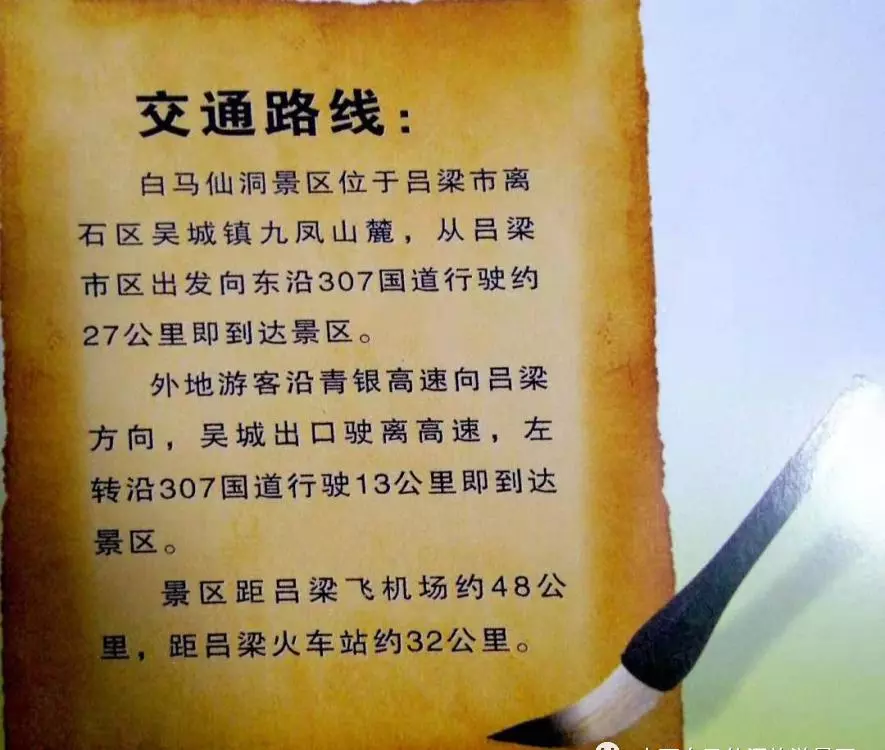 交通路线：
白马仙洞景区位于吕梁市离
石区吴城镇九凤山麓，从吕梁
市区出发向东沿307国道行驶约
27公里即到达景区。
外地游客沿青银高速向吕梁
方向，吴城出口驶离高速，左
转沿307国道行驶13公里即到达
景区。
景区距吕梁飞机场约48公
里，距吕梁火车站约32公里。